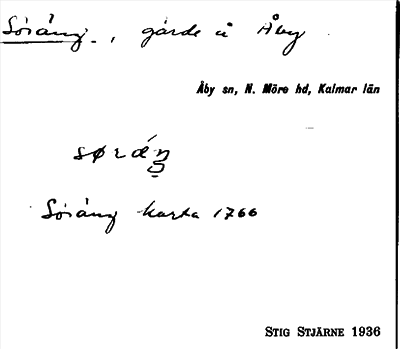 Söräng, gärde å Åby
Åby sn, N. Möre hd, Kalmar län
Söräng karta 1766
STIG STJÄRNE 1936